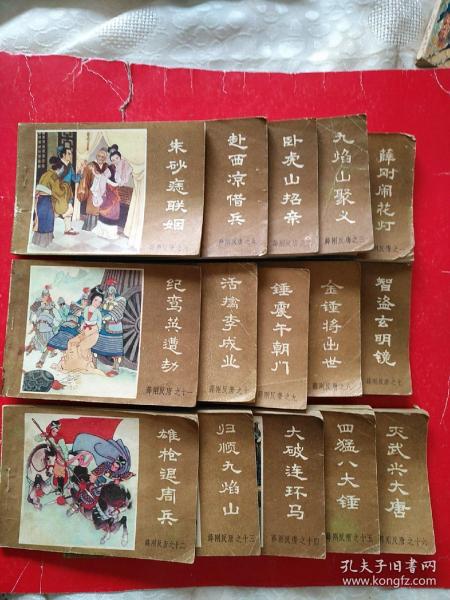 朱砂痣联姻
薛刚反唐之六
赴西凉借兵
薛刚反唐之五
卧虎山招亲
薛刚反唐之四
九焰山聚义
薛刚反唐之三
薛刚闹花灯
薛刚反唐之一
纪鸾英遭劫
薛刚反唐之十一
活擒李成业
薛刚反唐之十
锤震午朝门
薛刚反唐之九
金锤将出世
薛刚反唐之八
智盗玄明镜
薛刚反唐之七
雄枪退周兵
薛刚反唐之十二
归顺九焰山
薛刚反唐之十三
大破连环马
薛刚反唐之十四
四猛八大锤
薛刚反唐之十五
灭武兴大唐
薛刚反唐之十六
孔夫子旧书网
www.kongfz.com